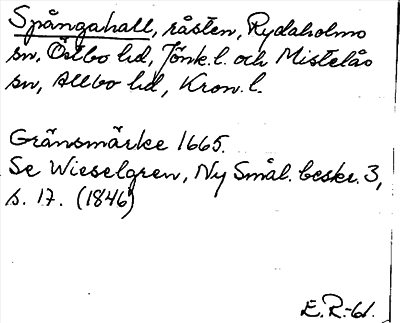 Spångahall, råsten, Rydaholms
sn, Östbo hd, Jönk. l. och Mistelås
sn, Allbo hd, Kron. l.
Gränsmärke 1665.
Se Wieselgren, Ny Smål. beskr. 3,
s. 17. (1846)
E. R.-61.